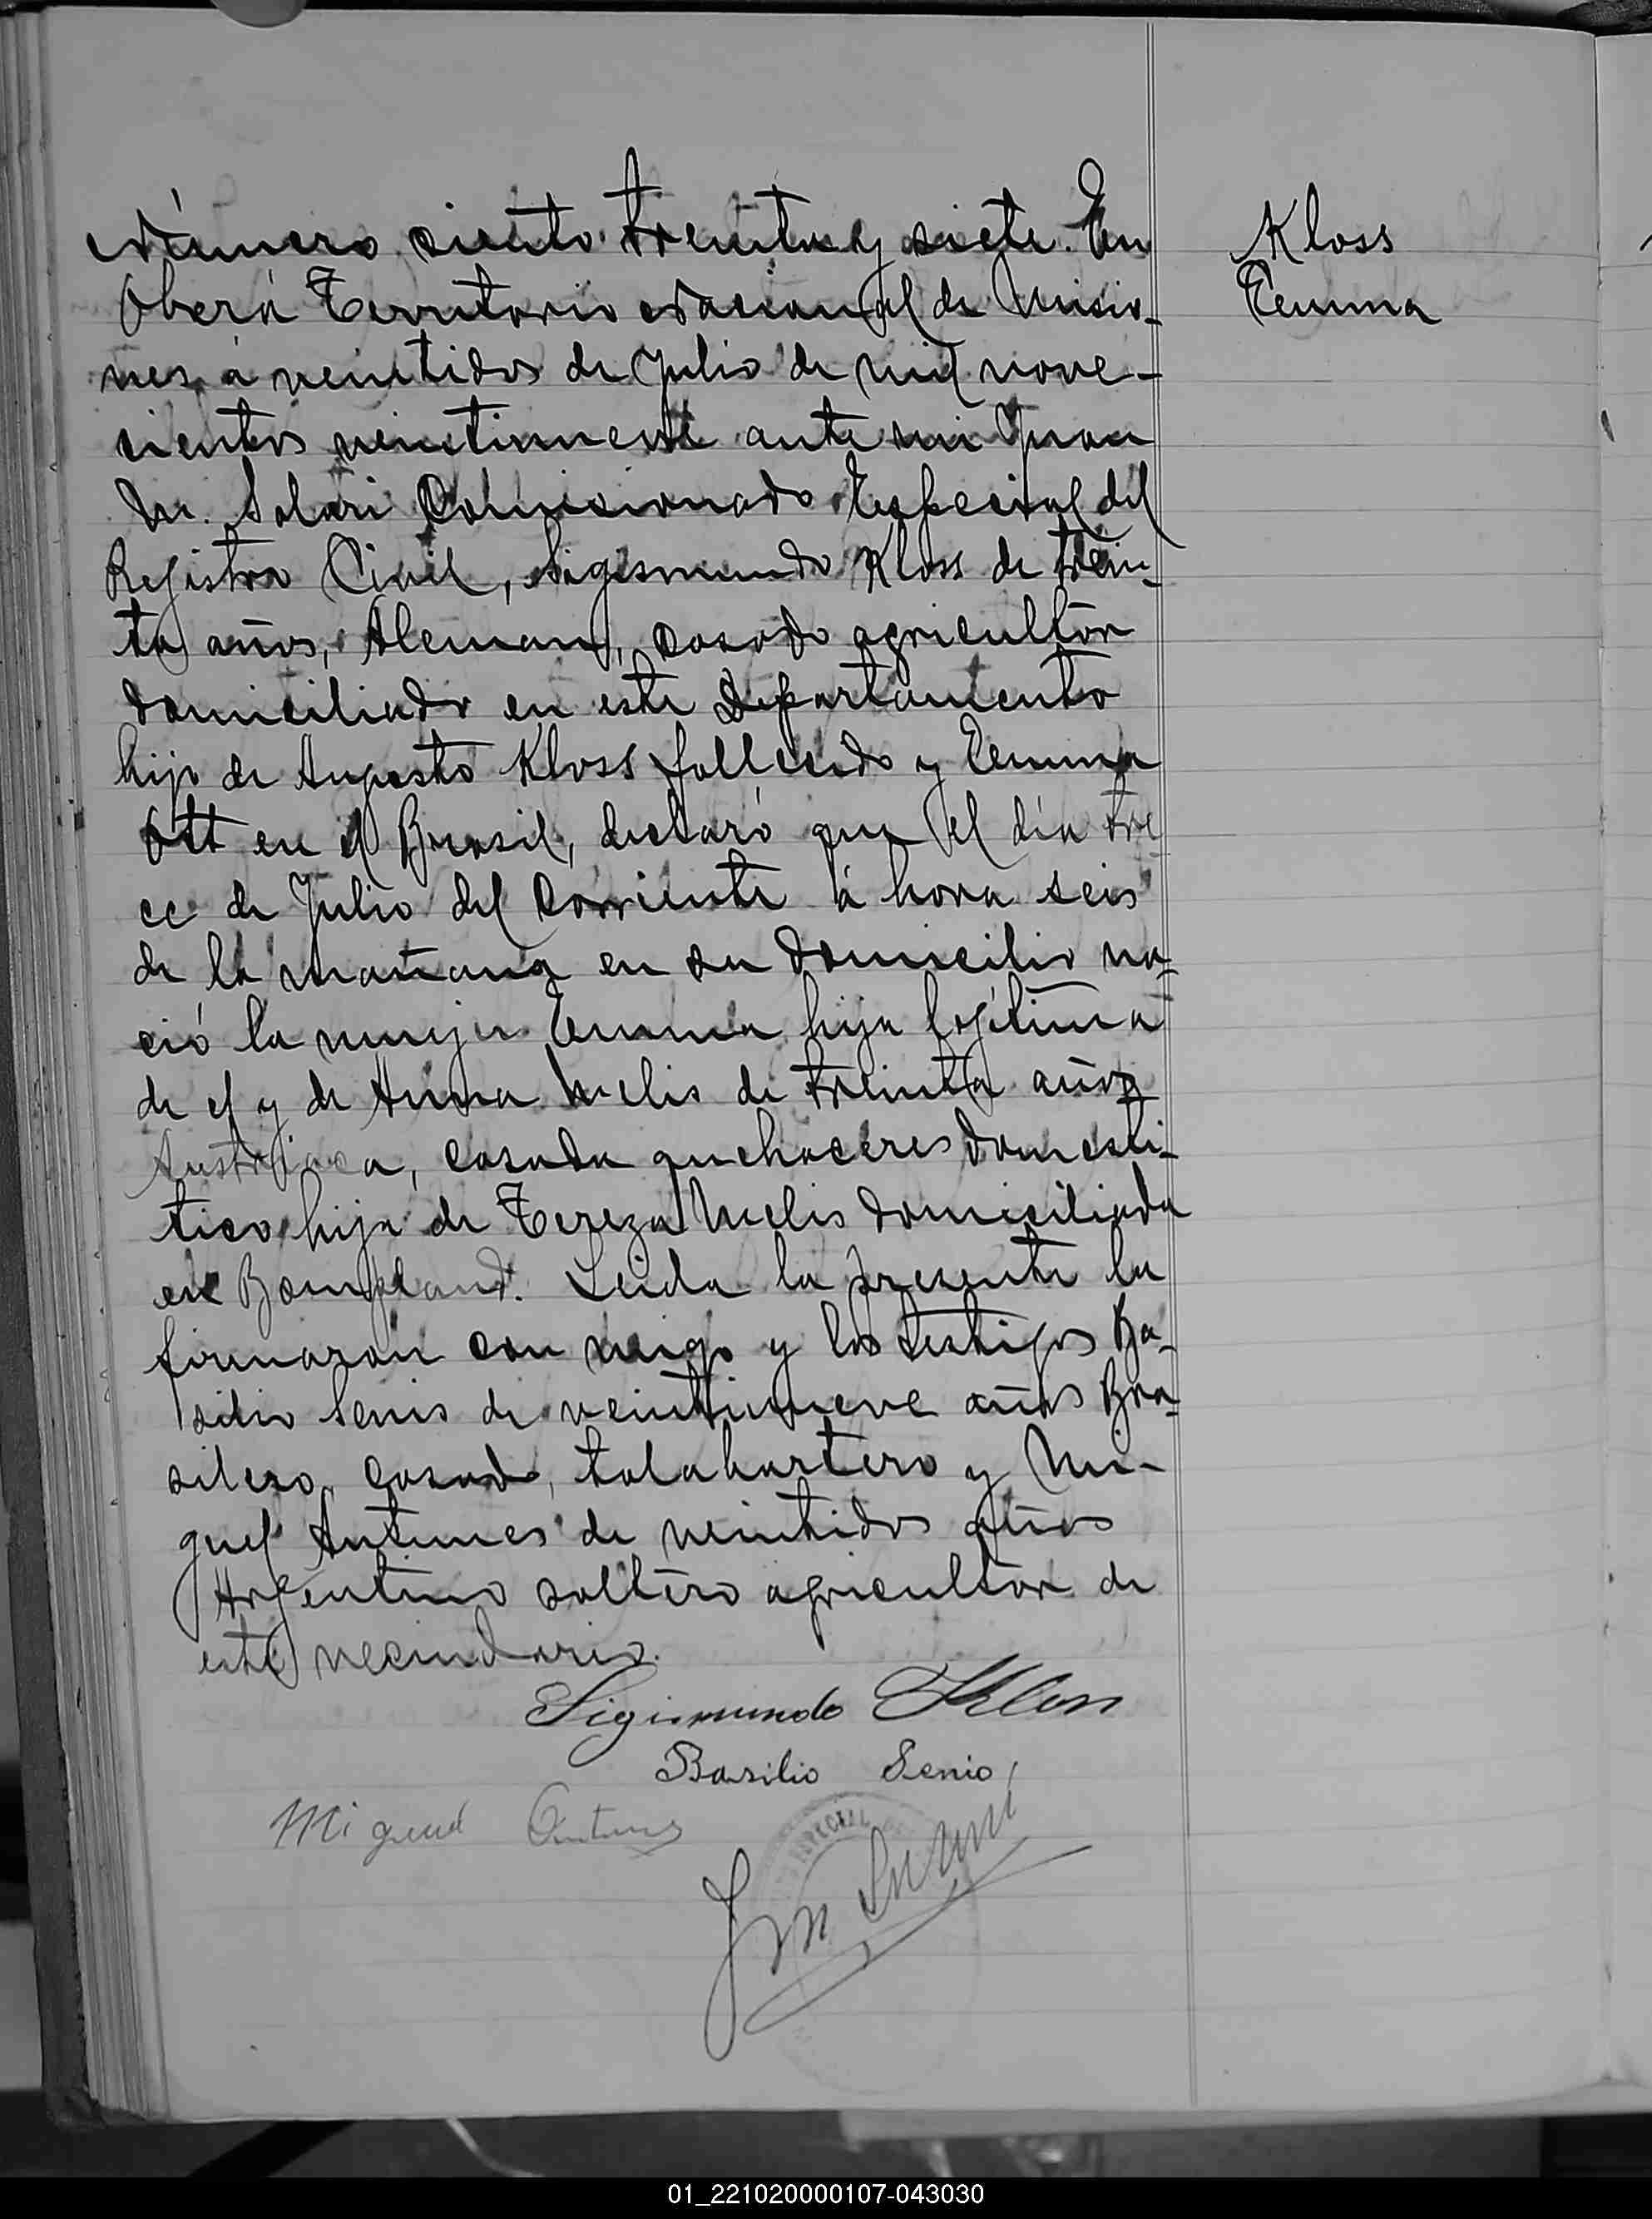 Número ciento treinta y siete. En
Oberá Territorio Nacional de Misio-
nes a veintidos de Julio de mil nove-
cientos veintinueve ante mi Juan
M. Solari Comisionado Especial del
Registro Civil, Sigismundo Kloss de trein-
ta años, Aleman, casado agricultor
domiciliado en este Departamento
hijo de Augosto Kloss fallecido y Eemma
Ott en el Brasil, declaró que el día tre
ce de Julio del corriente á hora seis
de la mañana en su domicilio na-
ció la mujer Emma hija legítima
de el y de Anna Melis de treinta años
Austriaca, casada quehaceres domesti-
tico hija de Tereza Melis domiciliada
en Bompland. Leida la presente la
firmaron con migo y los testigos Ba-
silio Senis de veintinueve años Bra-
silero, casado, talabartero y Mi-
guel Antunes de veintidos años
Argentino soltero agricultor de
este vecindario.
Kloss
Eemma
Sigismundo Kloss
Basilio Senio
Miguel Antunes
ESPECIAL
01_221020000107-043030